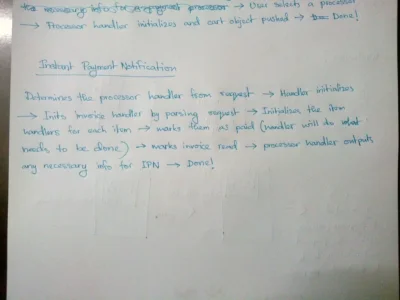 the necessary info for a payment processor → User selects a processor
→ Processor handler initializes and cart object pushed → Done!
Instant Payment Notification
Determines the processor handler from request → Handler initializes
→ Inits invoice handler by parsing request → Initialises the item
handlers for each item → marks them as paid (handler will do what
needs to be done) → marks invoice read → processor handler outputs
any necessary info for IPN → Done!